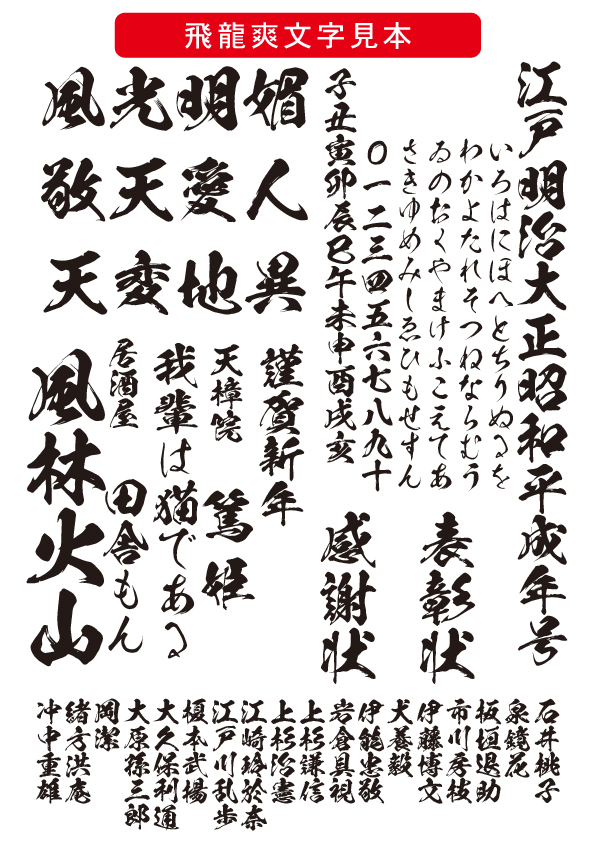 飛龍爽文字見本
江戸明治大正昭和平成年号
いろはにほへとちりぬるを
わかよたれそつねならむう
ゐのおくやまけふこえてあ
さきゆめみしゑひもせすん
〇一二三四五六七八九十
子丑寅卯辰巳午未申酉戌亥
表彰状
感謝状
媚人異
明愛地
光天変
風敬天
謹賀新年
天樟院
篤姫
我輩は猫である
居酒屋
田舎もん
風林火山
石井桃子
泉鏡花
板垣退助
市川房枝
伊藤博文
犬養毅
伊能忠敬
岩倉具視
上杉謙信
上杉治憲
江崎玲於奈
江戸川乱歩
榎本武揚
大久保利通
大原孫三郎
岡潔
緒方洪庵
沖中重雄